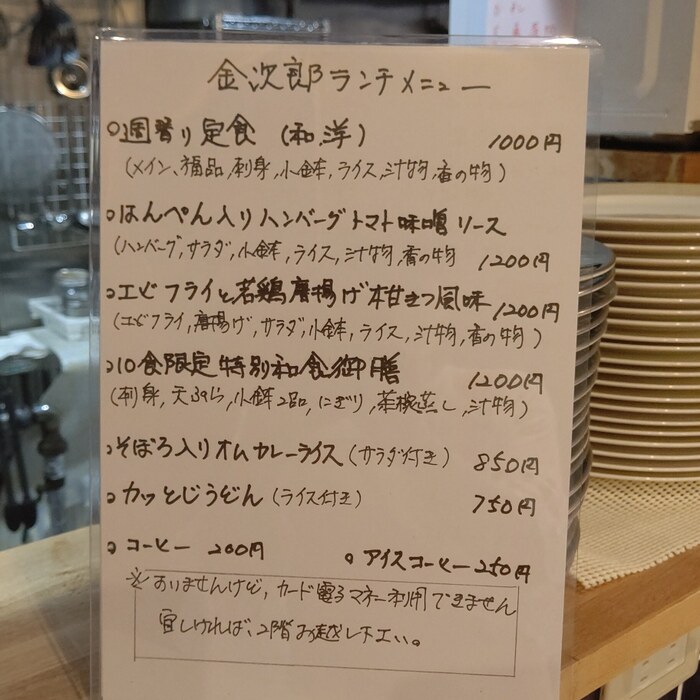 金次郎ランチメニュー
○週替り定食 (和,洋) 1000円
(メイン、福品,刺身,小鉢,ライス,汁物,香の物)
○はんぺん入りハンバーグトマト味噌ソース
(ハンバーグ,サラダ,小鉢,ライス,汁物,香の物 1200円
○エビフライと若鶏唐揚げ本甘きつ風味 1200円
(エビフライ,唐揚げ,サラダ,小鉢,ライス,汁物,香の物)
○10食限定特別和食御膳 1200円
(刺身,天ぷら,小鉢2品,にぎり,茶椀蒸し,汁物)
○そぼろ入りオムカレーライス(サラダ付き) 850円
○カツとじうどん(ライス付き) 750円
○コーヒー 200円 ○アイスコーヒー250円
※ カード電子マネー利用できません
宜しければ、2階お越し下エい。